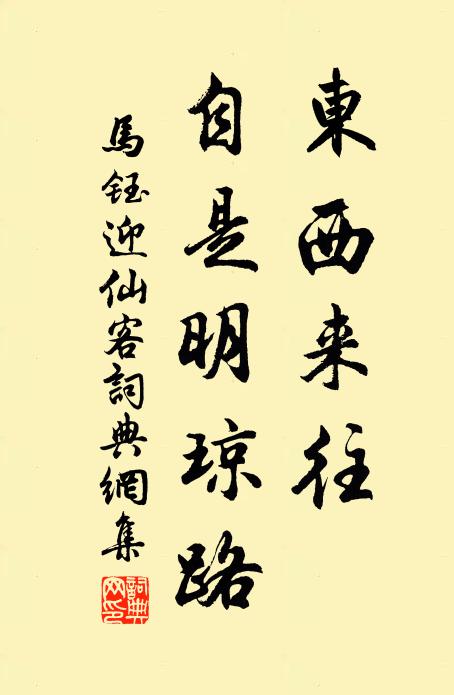 東西来往
自是明琼路
馬鈺迎仙客詞典網集
詞典網印